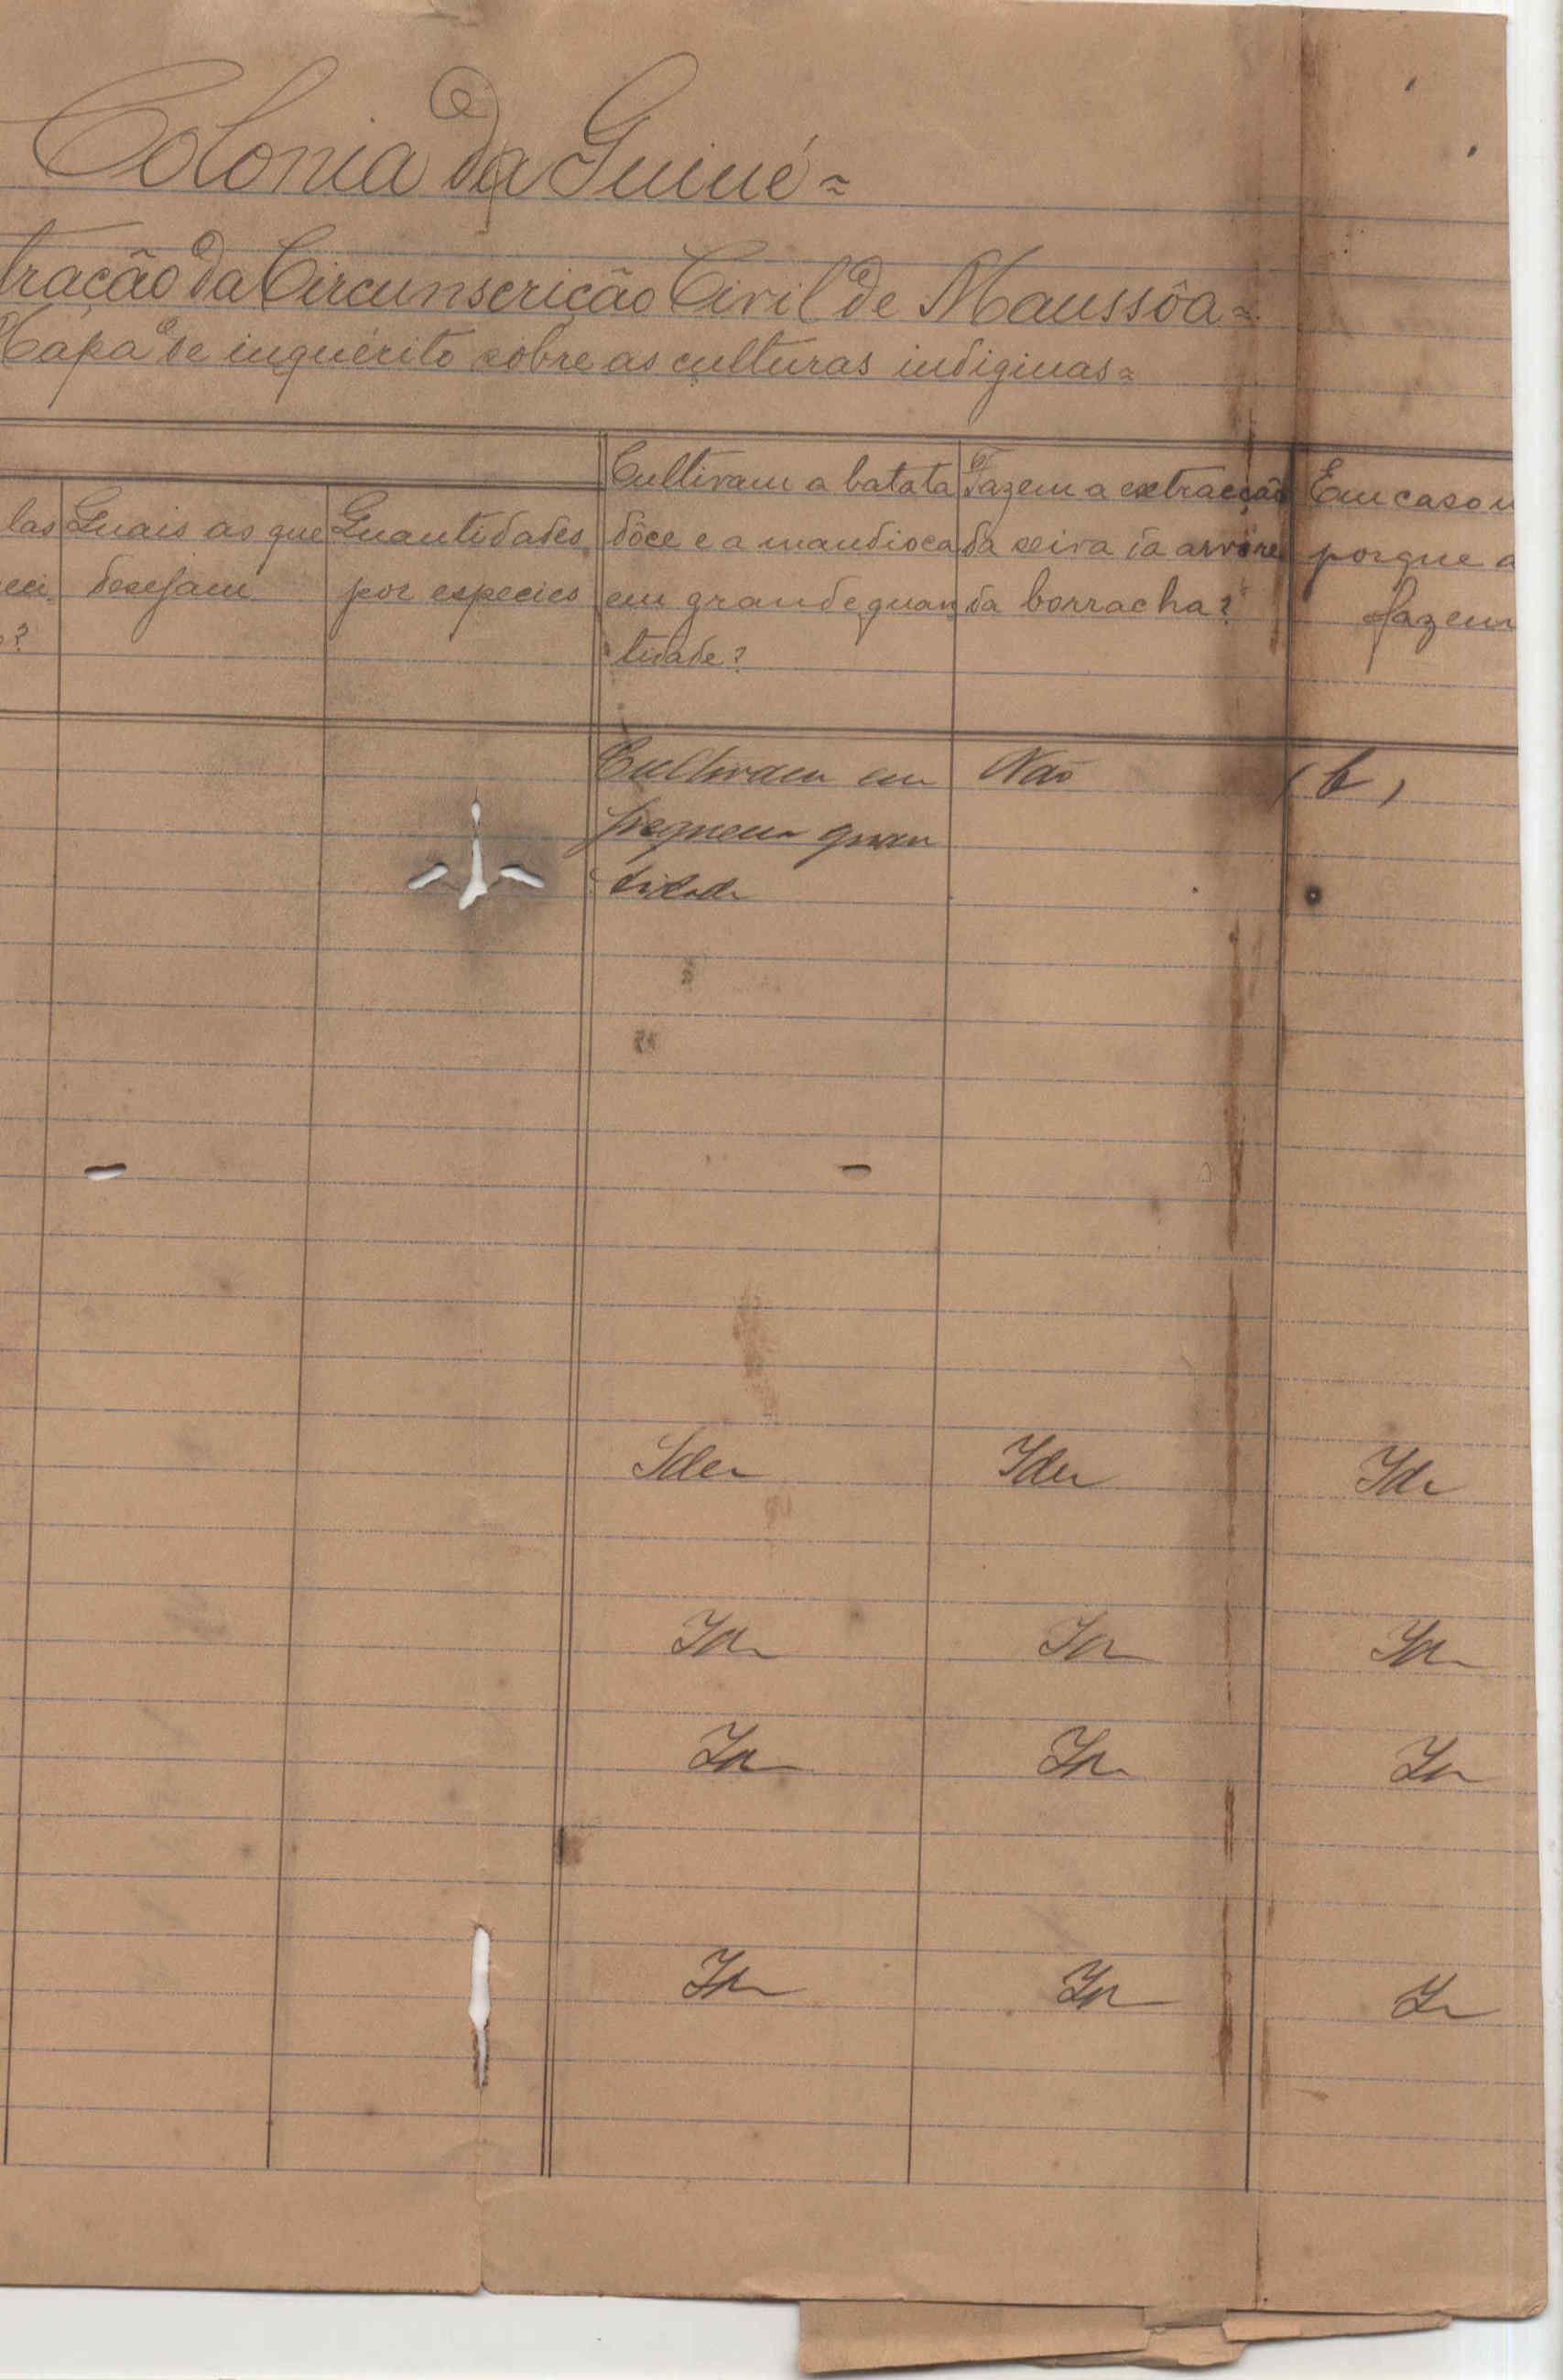 Colonia da Guiné=
tração da Circunscrição Civil de Manssôa=
Mapa de inquérito sobre as culturas indiginas=
las
eci
o?
Quais as que
desejam
Quantidades
por especies
Cultivam a batata
dôce e a mandioca
em grande quan
tidade?
Fazem a extracção
da seiva da arvore
da borracha?
Em caso n
porque a
fazem
Cultivam em
pequena quan
tidade
Não
(b)
Idem Idem Id
Id Id Id
Id Id Id
Id Id Id